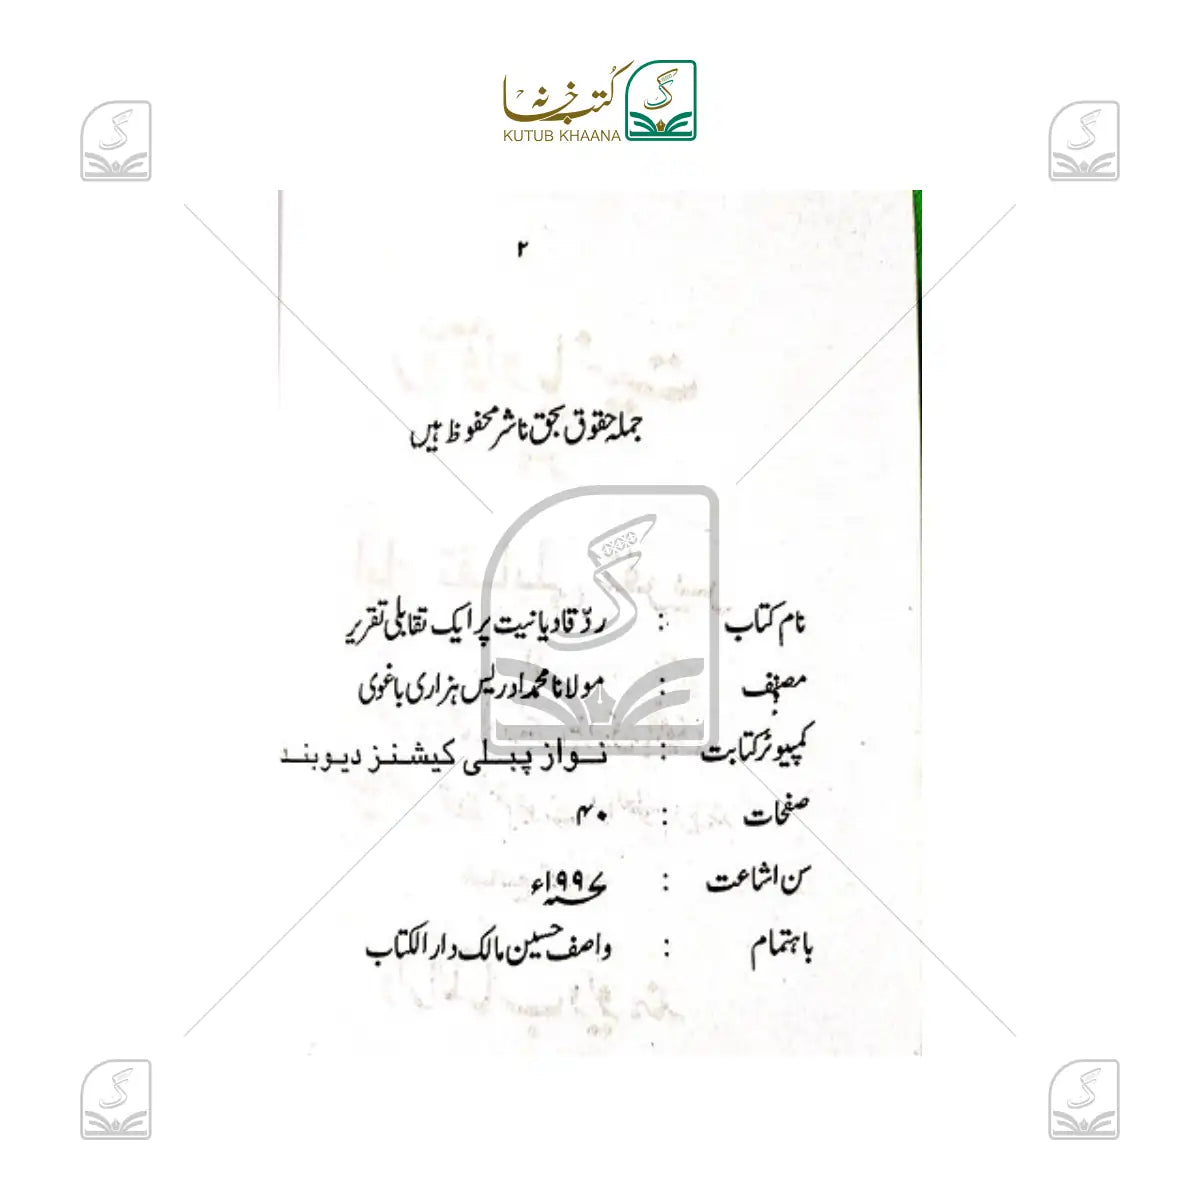 کتب خانہ
KUTUB KHAANA
۲
جملہ حقوق بحق ناشر محفوظ ہیں
نام کتاب : ردّ قادیانیت پر ایک تقابلی تقریر
مصنف : مولانا محمد ادریس ہزاری باغوی
کمپیوٹر کتابت : نواز پبلی کیشنز دیوبند
صفحات : ۴۰
سن اشاعت : ۱۹۹۷ء
باہتمام : واصف حسین مالک دارالکتاب